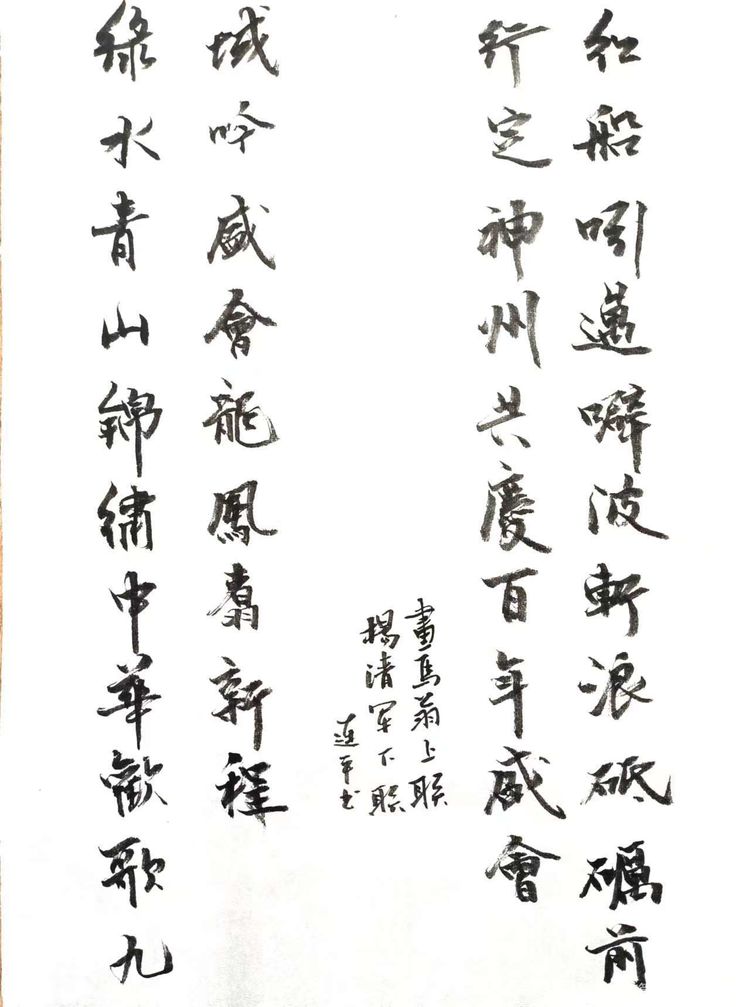 紅船吲邁噼波斬浪砥礪前
行定神州共慶百年盛會
畫馬翁上聯
楊清軍下聯
連平书
綠水青山錦繡中華歡歌九
域吟盛會龍鳳翥新程